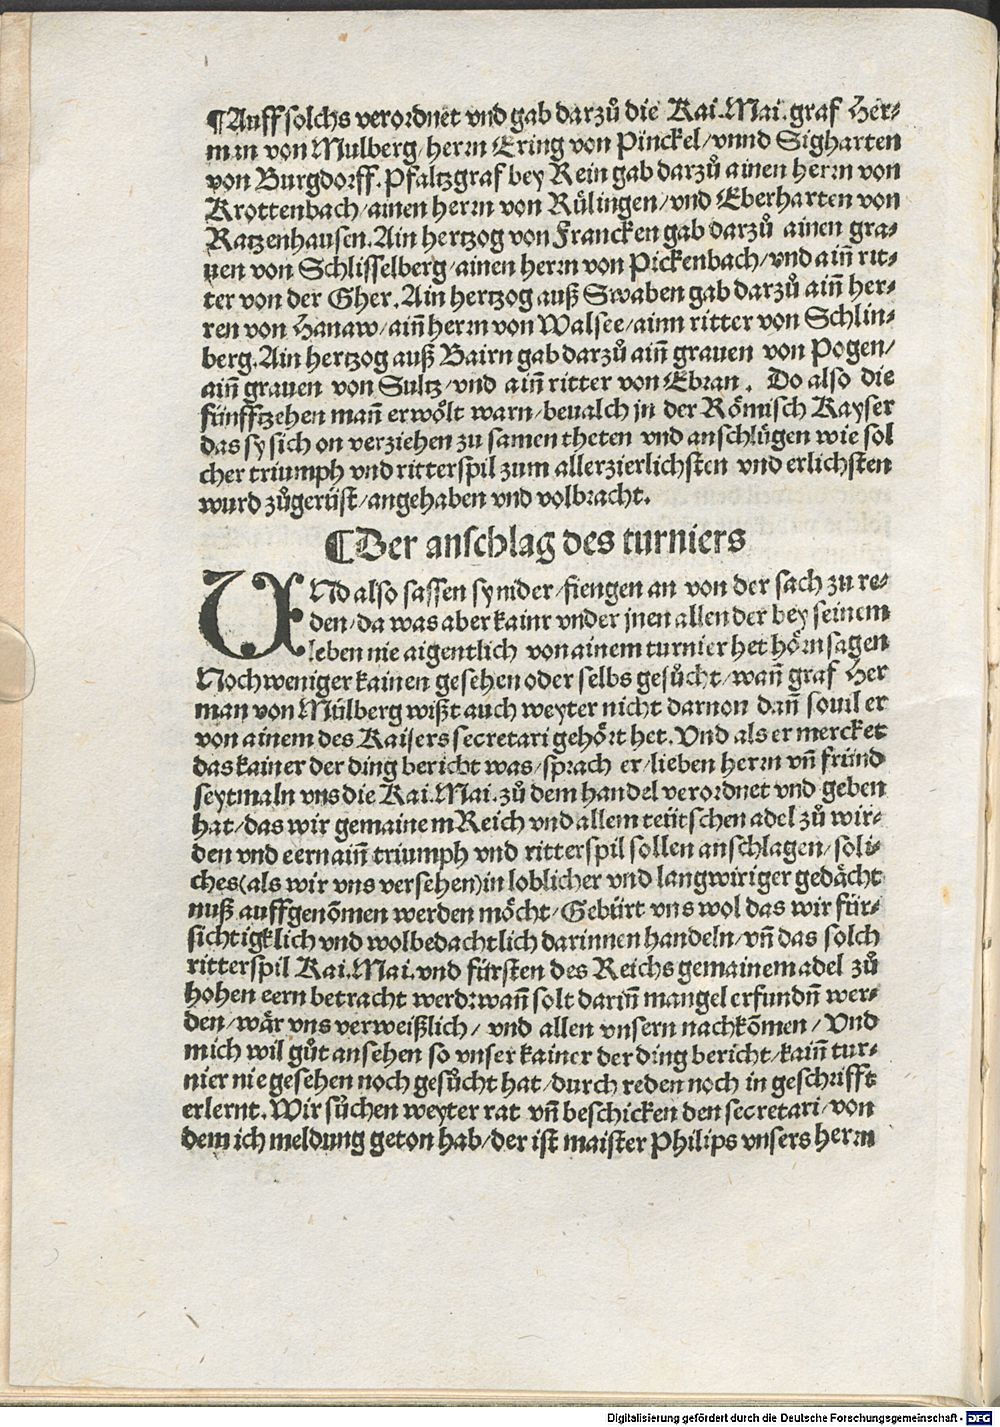 ¶Auff solchs verordnet vnd gab darzů die Kai. Mai. graf Her⸗
man von Mulberg/herrn Ering von Pinckel/vnnd Sigharten
von Burgdorff. Pfaltzgraf bey Rein gab darzů ainen herrn von
Krottenbach/ainen herrn von Rülingen/vnd Eberharten von
Ratzenhausen. Ain hertzog von Francken gab darzů ainen gra⸗
uen von Schlisselberg/ainen herrn von Pickenbach/vnd aiñ rit⸗
ter von der Gher. Ain hertzog auß Swaben gab darzů aiñ her⸗
ren von Hanaw/aiñ herrn von Walsee/ainn ritter von Schlin⸗
berg. Ain hertzog auß Bairn gab darzů aiñ grauen von Pogen/
aiñ grauen von Sultz/vnd aiñ ritter von Ebran. Do also die
fünfftzehen mañ erwölt warn/beualch jn der Römisch Kayser
das sy sich on verziehen zu samen theten vnd anschlügen wie sol
cher triumph vnd ritterspil zum allerzierlichsten vnd erlichsten
wurd zůgerüst/angehaben vnd volbracht.
¶Der anschlag des turniers
VNd also sassen sy nider/fiengen an von der sach zu re⸗
den/da was aber kainr vnder jnen allen der bey seinem
leben nie aigentlich von ainem turnier het hörn sagen
Noch weniger kainen gesehen oder selbs gesůcht/wañ graf Her
man von Mülberg wißt auch weyter nicht daruon dañ souil er
von ainem des Kaisers secretari gehört het. Vnd als er mercket
das kainer der ding bericht was/sprach er/lieben herrn vñ fründ
seytmaln vns die Kai. Mai. zů dem handel verordnet vnd geben
hat/das wir gemainem Reich vnd allem teütschen adel zů wir⸗
den vnd eern aiñ triumph vnd ritterspil sollen anschlagen/soli⸗
ches(als wir vns versehen)in loblicher vnd langwiriger gedächt
nuß auffgenõmen werden möcht/Gebürt vns wol das wir für⸗
sichtigklich vnd wolbedachtlich darinnen handeln/vñ das solch
ritterspil Kai. Mai. vnd fürsten des Reichs gemainem adel zů
hohen eern betracht werd:wañ solt dariñ mangel erfundñ wer⸗
den/wär vns verweißlich/ vnd allen vnsern nachkõmen/Vnd
mich wil gůt ansehen so vnser kainer der ding bericht/kaiñ tur⸗
nier nie gesehen noch gesůcht hat/durch reden noch in geschrifft
erlernt. Wir sůchen weyter rat vñ beschicken den secretari/von
dem ich meldung geton hab/der ist maister Philips vnsers herrn
Digitalisierung gefördert durch die Deutsche Forschungsgemeinschaft - DFG